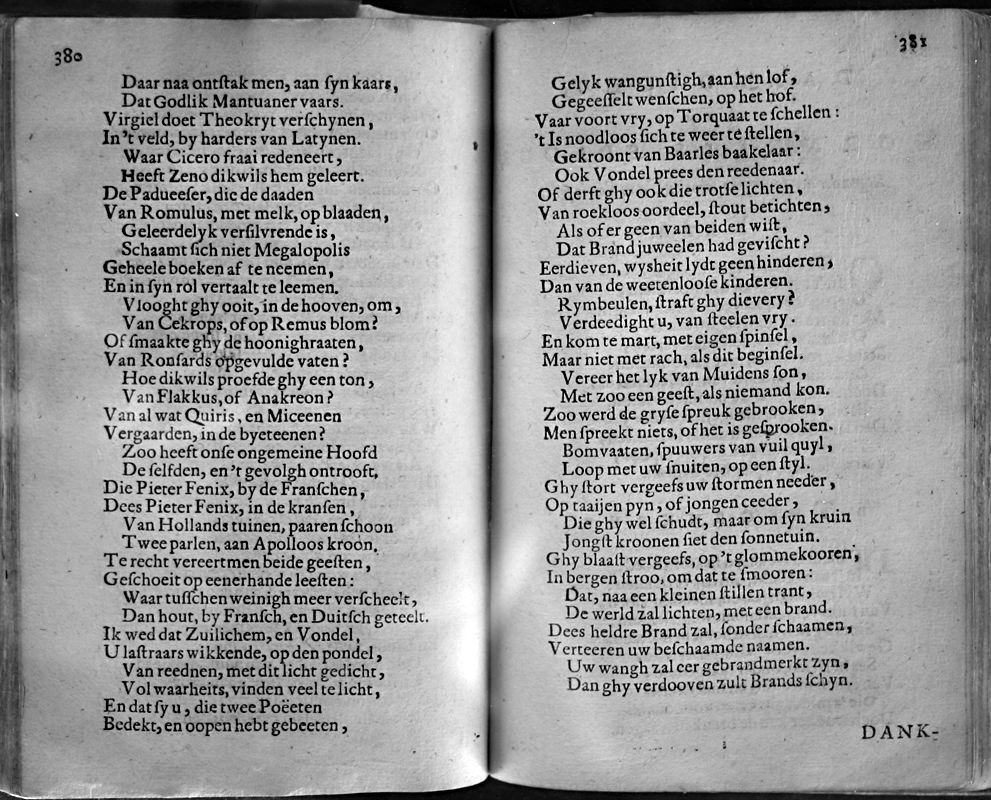 380
Daar naa ontſtak men, aan ſyn kaars,
Dat Godlik Mantuaner vaars.
Virgiel doet Theokryt verſchynen,
In 't veld, by harders van Latynen.
Waar Cicero fraai redeneert,
Heeft Zeno dikwils hem geleert.
De Padueeſer, die de daaden
Van Romulus, met melk, op blaaden,
Geleerdelyk verſilvrende is,
Schaamt ſich niet Megalopolis
Geheele boeken af te neemen,
En in ſyn rol vertaalt te leemen.
Vlooght ghy ooit, in de hooven, om,
Van Cekrops, of op Remus blom?
Of ſmaakte ghy de hoonighraaten,
Van Ronſards opgevulde vaten?
Hoe dikwils proefde ghy een ton,
Van Flakkus, of Anakreon?
Van al wat Quiris, en Miceenen
Vergaarden, in de byeteenen?
Zoo heeft onſe ongemeine Hoofd
De ſelfden, en 't gevolgh ontrooft.
Die Pieter Fenix, by de Franſchen,
Dees Pieter Fenix, in de kranſen,
Van Hollands tuinen, paaren ſchoon
Twee parlen, aan Apolloos kroon.
Te recht vereert men beide geeſten,
Geſchoeit op eenerhande leeſten:
Waar tuſſchen weinigh meer verſcheelt,
Dan hout, by Franſch, en Duitſch geteelt.
Ik wed dat Zuilichem, en Vondel,
U laſtraars wikkende, op den pondel,
Van reednen, met dit licht gedicht,
Vol waarheits, vinden veel te licht,
En dat ſy u, die twee Poëeten
Bedekt, en oopen hebt gebeeten,
381
Gelyk wangunſtigh, aan hen lof,
Gegeeſſelt wenſchen, op het hof.
Vaar voort vry, op Torquaat te ſchellen:
't Is noodloos ſich te weer te ſtellen,
Gekroont van Baarles baakelaar:
Ook Vondel prees den reedenaar.
Of derft ghy ook die trotſe lichten,
Van roekloos oordeel, ſtout betichten,
Als of er geen van beiden wiſt,
Dat Brand juweelen had geviſcht?
Eerdieven, wysheit lydt geen hinderen,
Dan van de weetenlooſe kinderen.
Rymbeulen, ſtraft ghy dievery?
Verdeedight u, van ſteelen vry.
En kom te mart, met eigen ſpinſel,
Maar niet met rach, als dit beginſel.
Vereer het lyk van Muidens ſon,
Met zoo een geeſt, als niemand kon.
Zoo werd de gryſe ſpreuk gebrooken,
Men ſpreekt niets, of het is geſprooken.
Bomvaaten, ſpuuwers van vuil quyl,
Loop met uw ſnuiten, op een ſtyl.
Ghy ſtort vergeefs uw ſtormen needer,
Op taaijen pyn, of jongen ceeder,
Die ghy wel ſchudt, maar om ſyn kruin
Jongſt kroonen ſiet den ſonnetuin.
Ghy blaaſt vergeefs, op 't glommekooren,
In bergen ſtroo, om dat te ſmooren:
Dat, naa een kleinen ſtillen trant,
De werld zal lichten, met een brand.
Dees heldre Brand zal, ſonder ſchaamen,
Verteeren uw beſchaamde naamen.
Uw wangh zal eer gebrandmerkt zyn,
Dan ghy verdooven zult Brands ſchyn.
DANK-